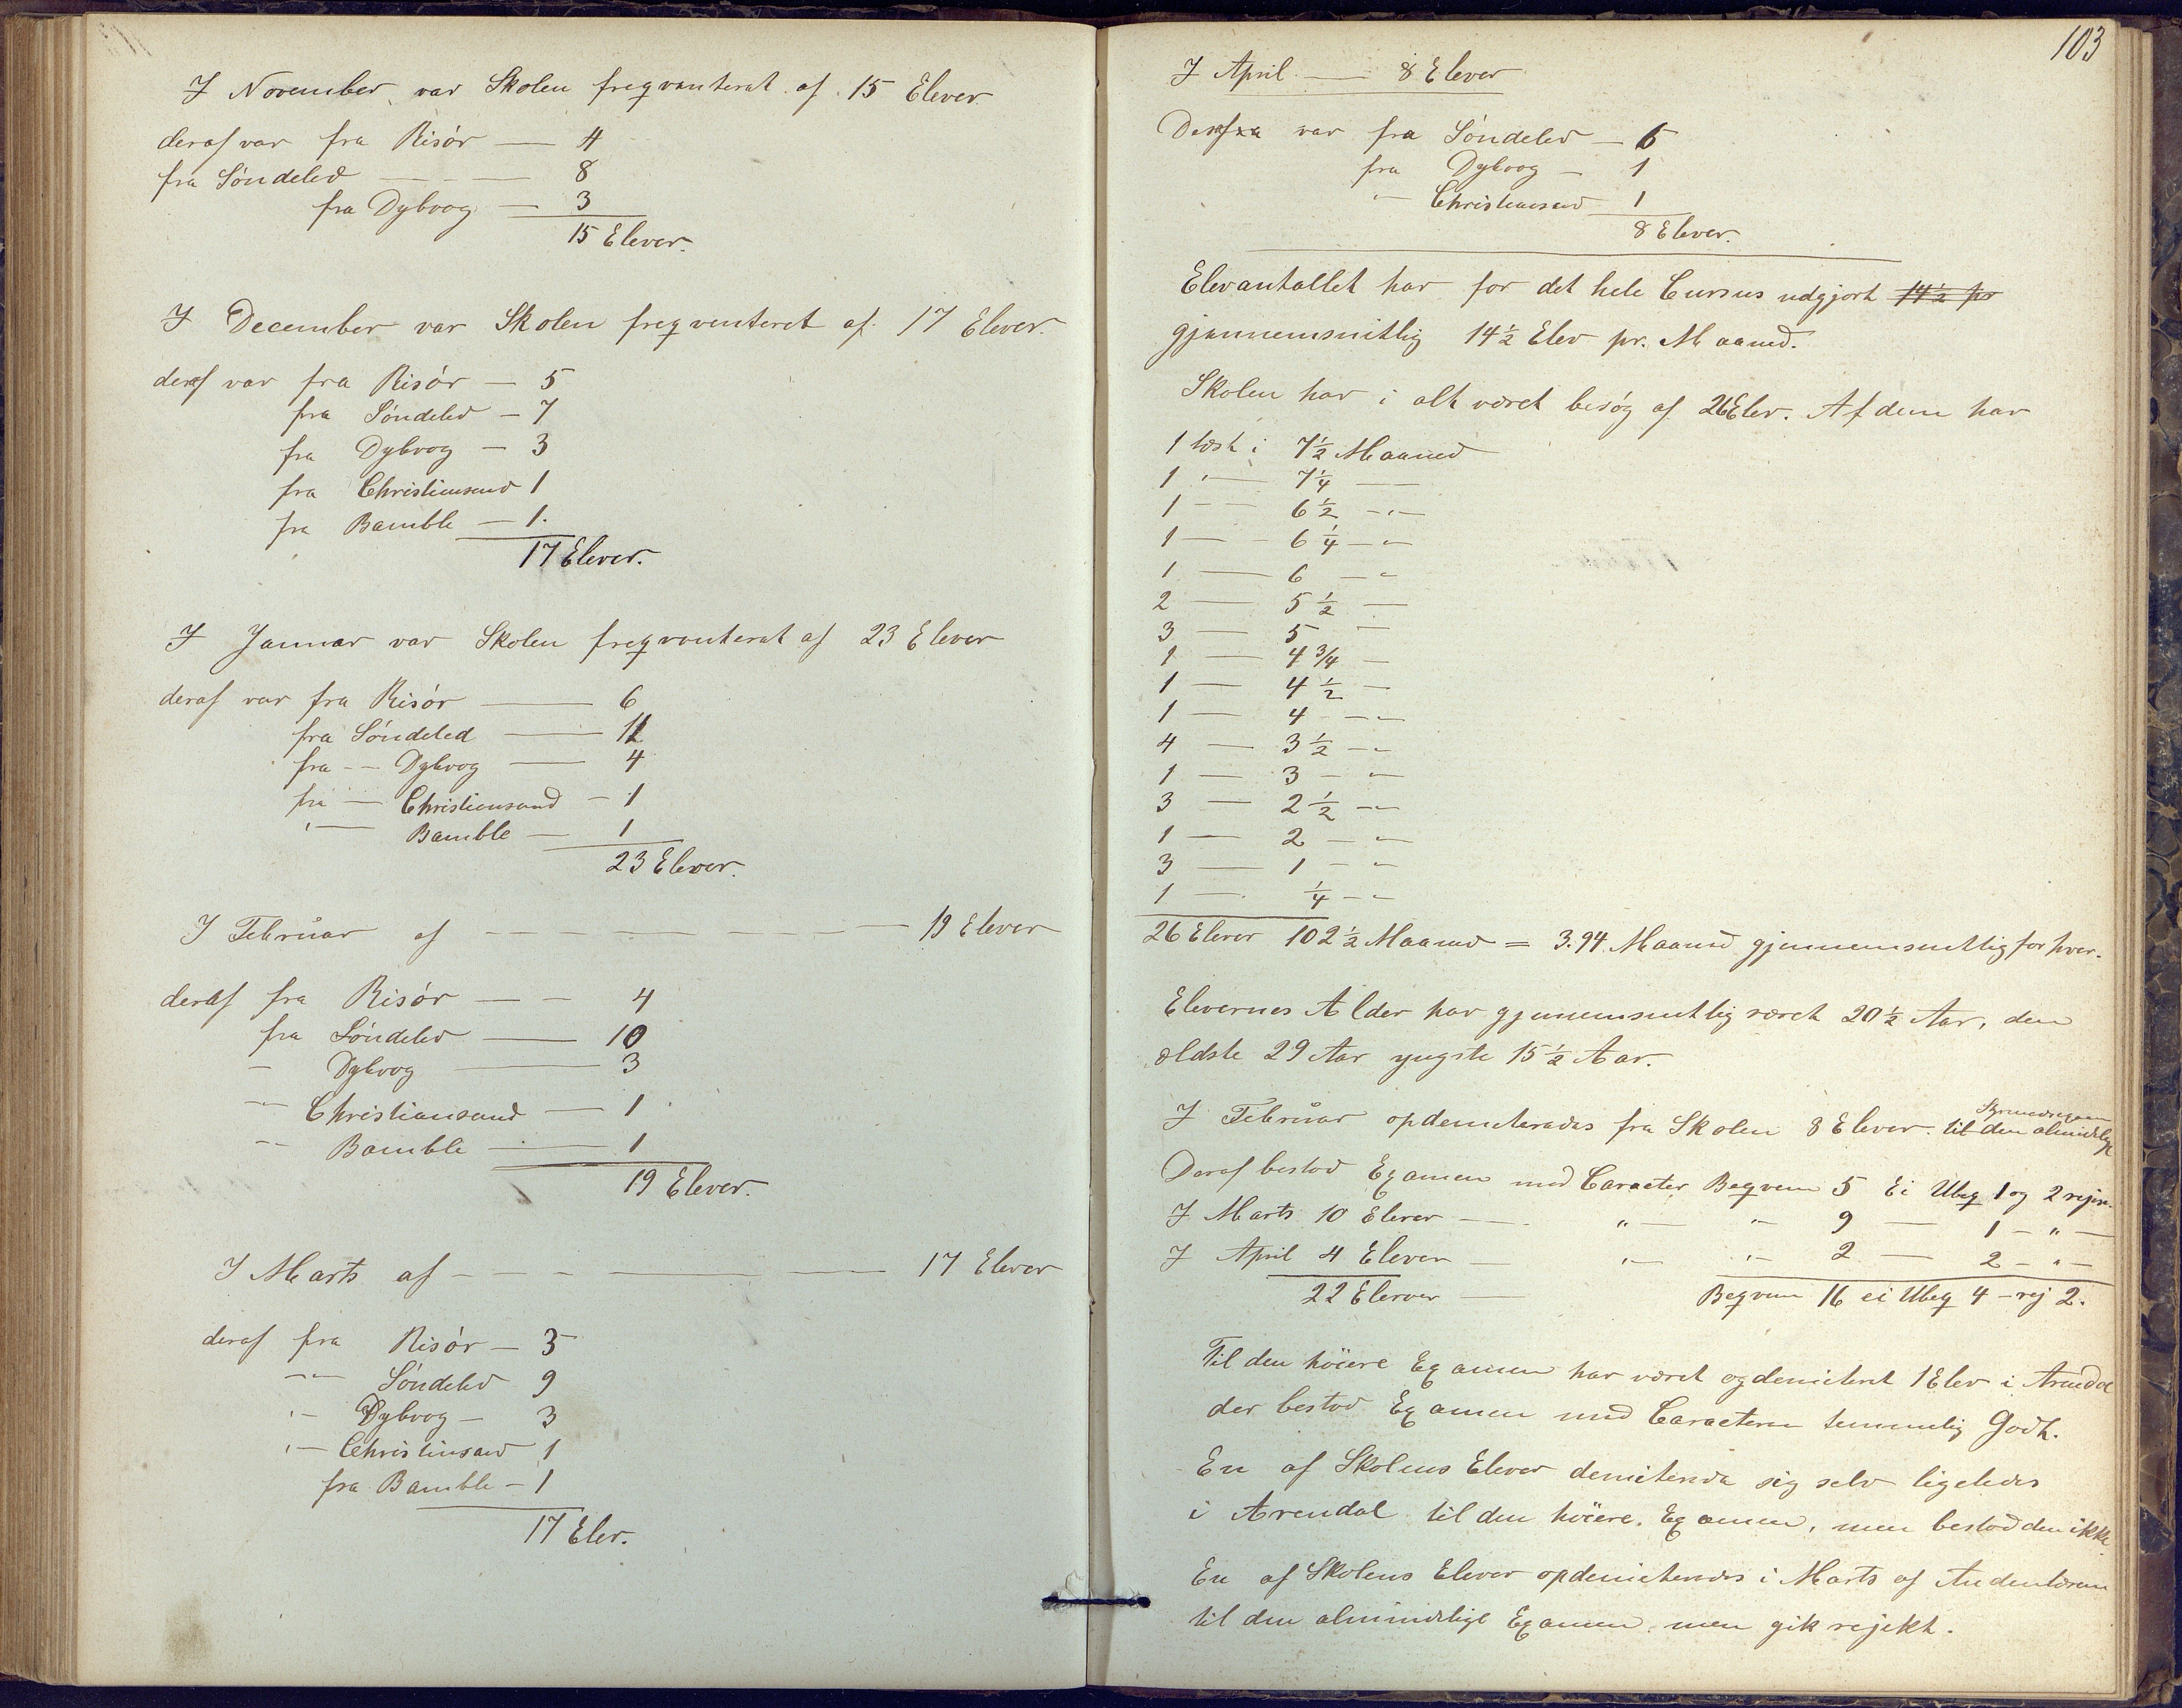 I November var Skolen freqventeret af 15 Elever.
deraf var fra Risör — 4
fra Söndeled — — — 8
fra Dybvog — 3
15 Elever.
I December var Skolen freqventeret af 17 Elever.
deraf var fra Risör — 5
fra Söndeled — 7
fra Dybvog — 3
fra Christiansand 1
fra Bamble — 1.
17 Elever.
I Januar var Skolen freqventeret af 23 Elever
deraf var fra Risör — 6
fra Söndeled — 11
fra — Dybvog — 4
fra — Christiansand — 1
"— Bamble — 1
23 Elever.
I Februar af — — — — — — 19 Elever
deraf fra Risör — — 4
fra Söndeled — 10
— Dybvog — 3
— Christiansand — 1
— Bamble — 1
19 Elever.
I Marts af — — — — — 17 Elever
deraf fra Risör — 3
"— Söndeled 9
"— Dybvog — 3
"— Christinsand 1
fra Bamble — 1
17 Elev.
103
I April — 8 Elever
var fra Söndeled — 6
fra Dybvog — 1
"— Christiansand 1
8 Elever.
Elevantallet har for det hele Cursus udgjort 14½ pr
gjennemsnitlig 14½ Elev pr. Maaned.
Skolen har i alt været besög af 26 Elev. Af dem har
1 læst i 7½ Maaned
1 "— 7¼ —
1 — 6½ —"—
1 — 6¼ —"
1 — 6 —"
2 — 5½ —
3 — 5 —
1 — 4¾ —
1 — 4½ —
1 — 4 —"
4 — 3½ —"
1 — 3 —"
3 — 2½ —"
1 — 2 —"
3 — 1 —"
1 — ¼ —"
26 Elever 102½ Maaned = 3.94 Maaned gjennemsnitlig for hver.
Elevernes Alder har gjennemsnitlig været 20½ Aar, den
ældste 29 Aar yngste 15½ Aar.
I Februar opdemiteredes fra Skolen 8 Elever til den almindelige
Deraf bestod Examen med Caracter Beqvem 5 Ei Ubeq 1 og 2 rejic.
I Marts 10 Elever — "— "— 9 — 1 — " —
I April 4 Elever — "— "— 2 — 2 — " —
22 Elever — Beqvem 16 ei Ubeq 4 — rej 2.
Til den höiere Examen har været opdemiteret 1 Elev i Arendal
der bestod Examen med Caracteren temmelig Godt.
En af Skolens Elever demiterede sig selv ligeledes
i Arendal til den höiere Examen, men bestod den ikke.
En af Skolens Elever opdemiteredes i Marts af Andenlæreren
til den almindelige Examen, men gik rejekt.